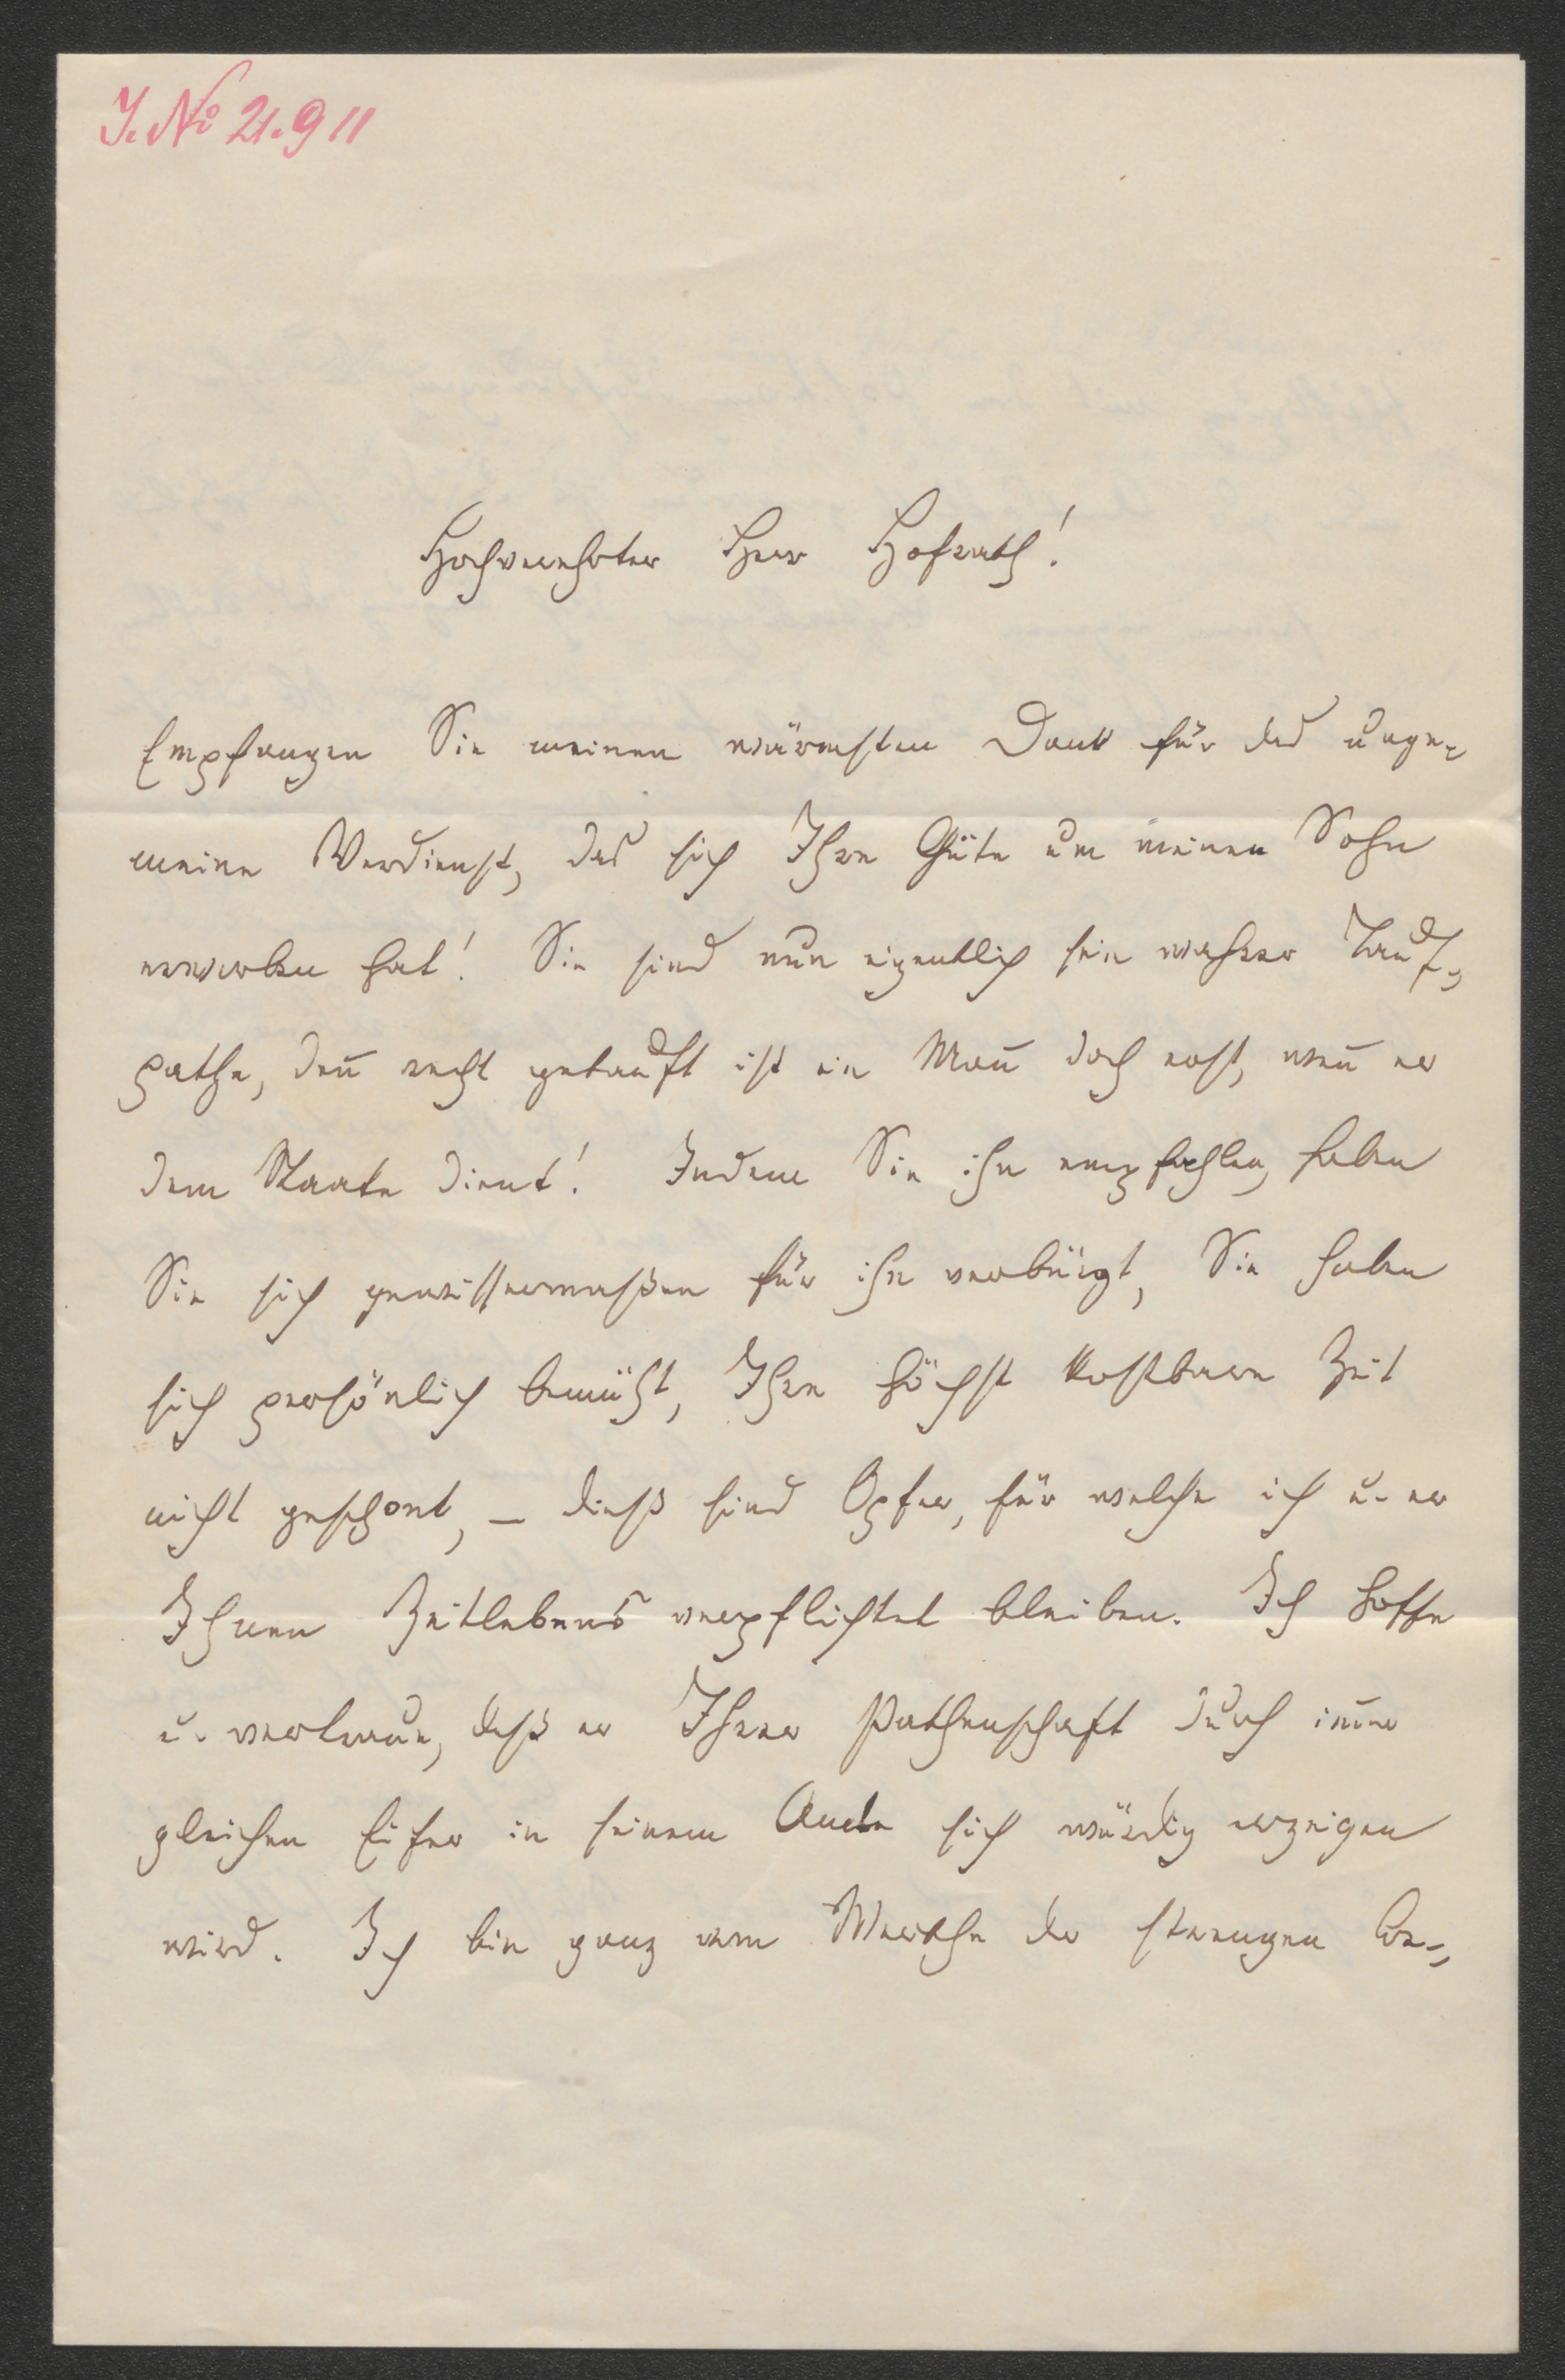 J. No 21.911
Hochverehrter Herr Hofrath!
Empfangen Sie meinen wärmsten Dank für das unge-
meine Verdienst, das sich Ihre Güte um meinen Sohn
erworben hat! Sie sind nun eigentlich sein wahrer Tauf-
pathe, den̄ recht getauft ist ein Man̄ doch erst, wen̄ er
dem Staate dient! Indem Sie ihn empfahlen, haben
Sie sich gewissermaßen für ihn verbürgt, Sie haben
sich persönlich bemüht, Ihre höchst kostbare Zeit
nicht geschont, – dieß sind Opfer, für welche ich u. er
Ihnen Zeitlebens verpflichtet bleiben. Ich hoffe
u. vertraue, daß er Ihrer Pathenschaft durch im̄er
gleichen Eifer in seinem Amte sich würdig erzeigen
wird. Ich bin ganz vom Werthe der strengen Be-